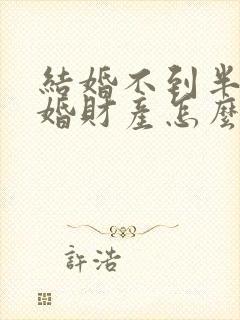 結婚不到半
婚財產怎麼
許浩